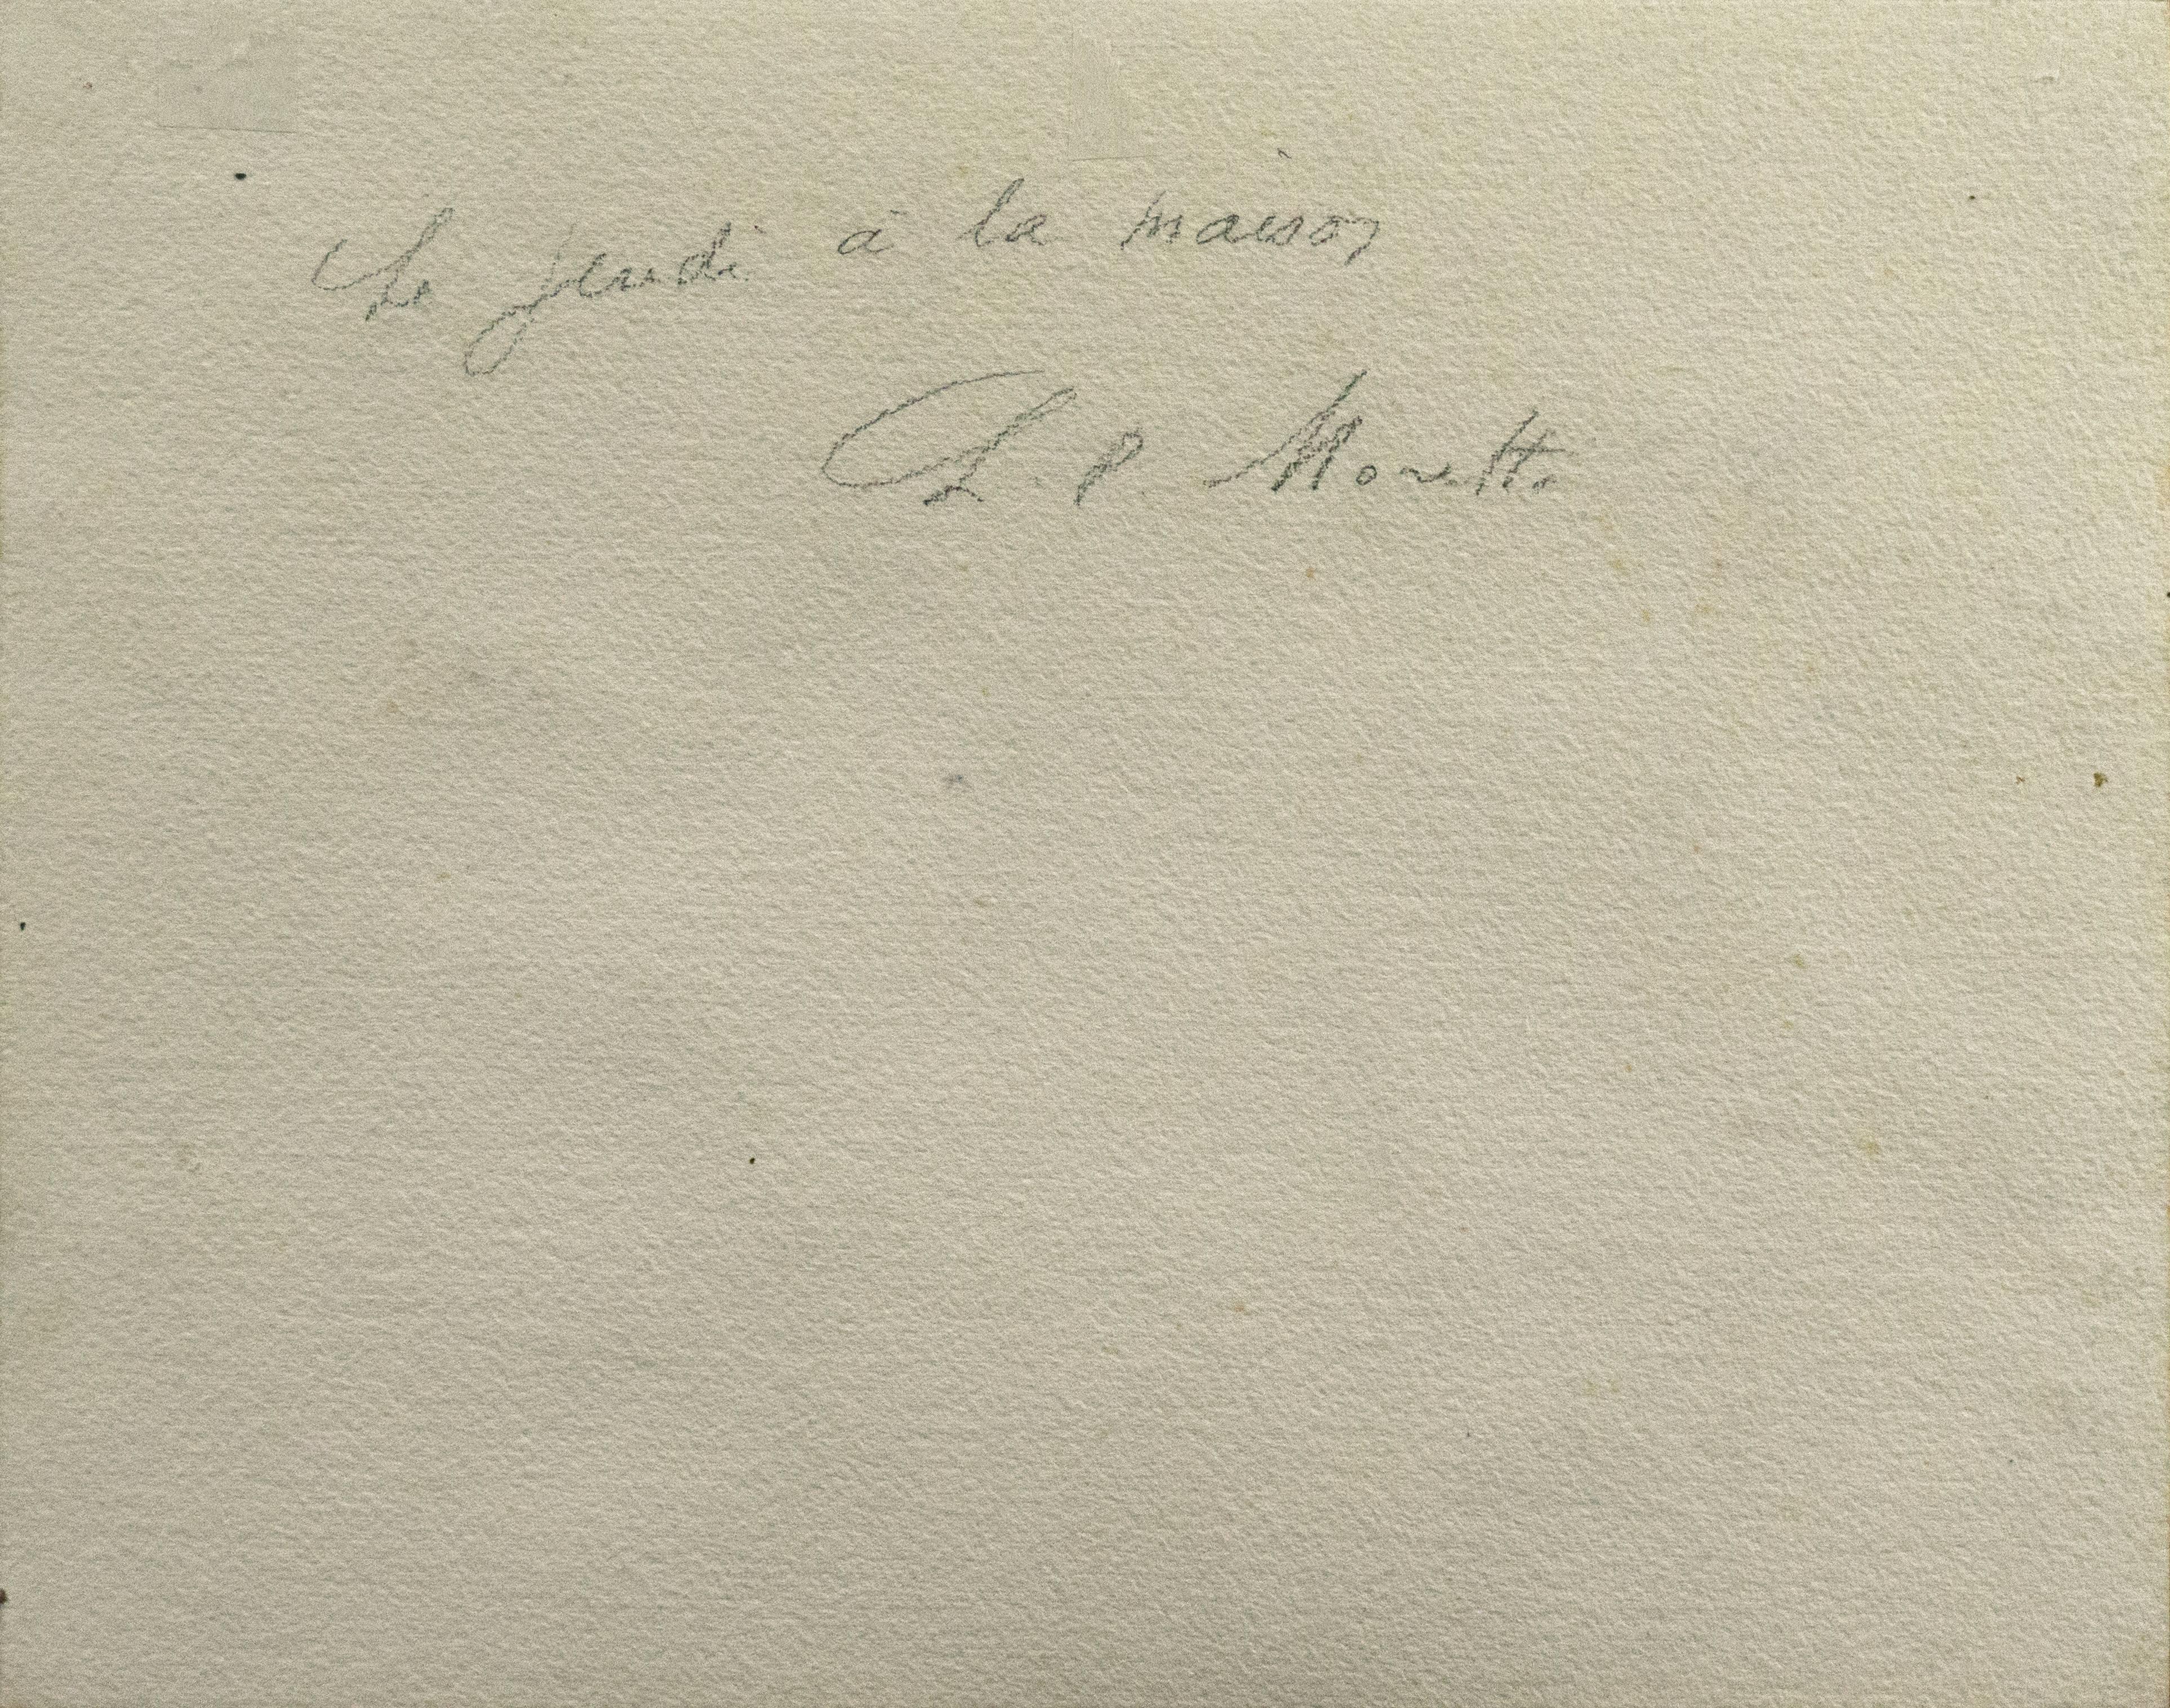 Le jeudi à la maison
L. P. Monette